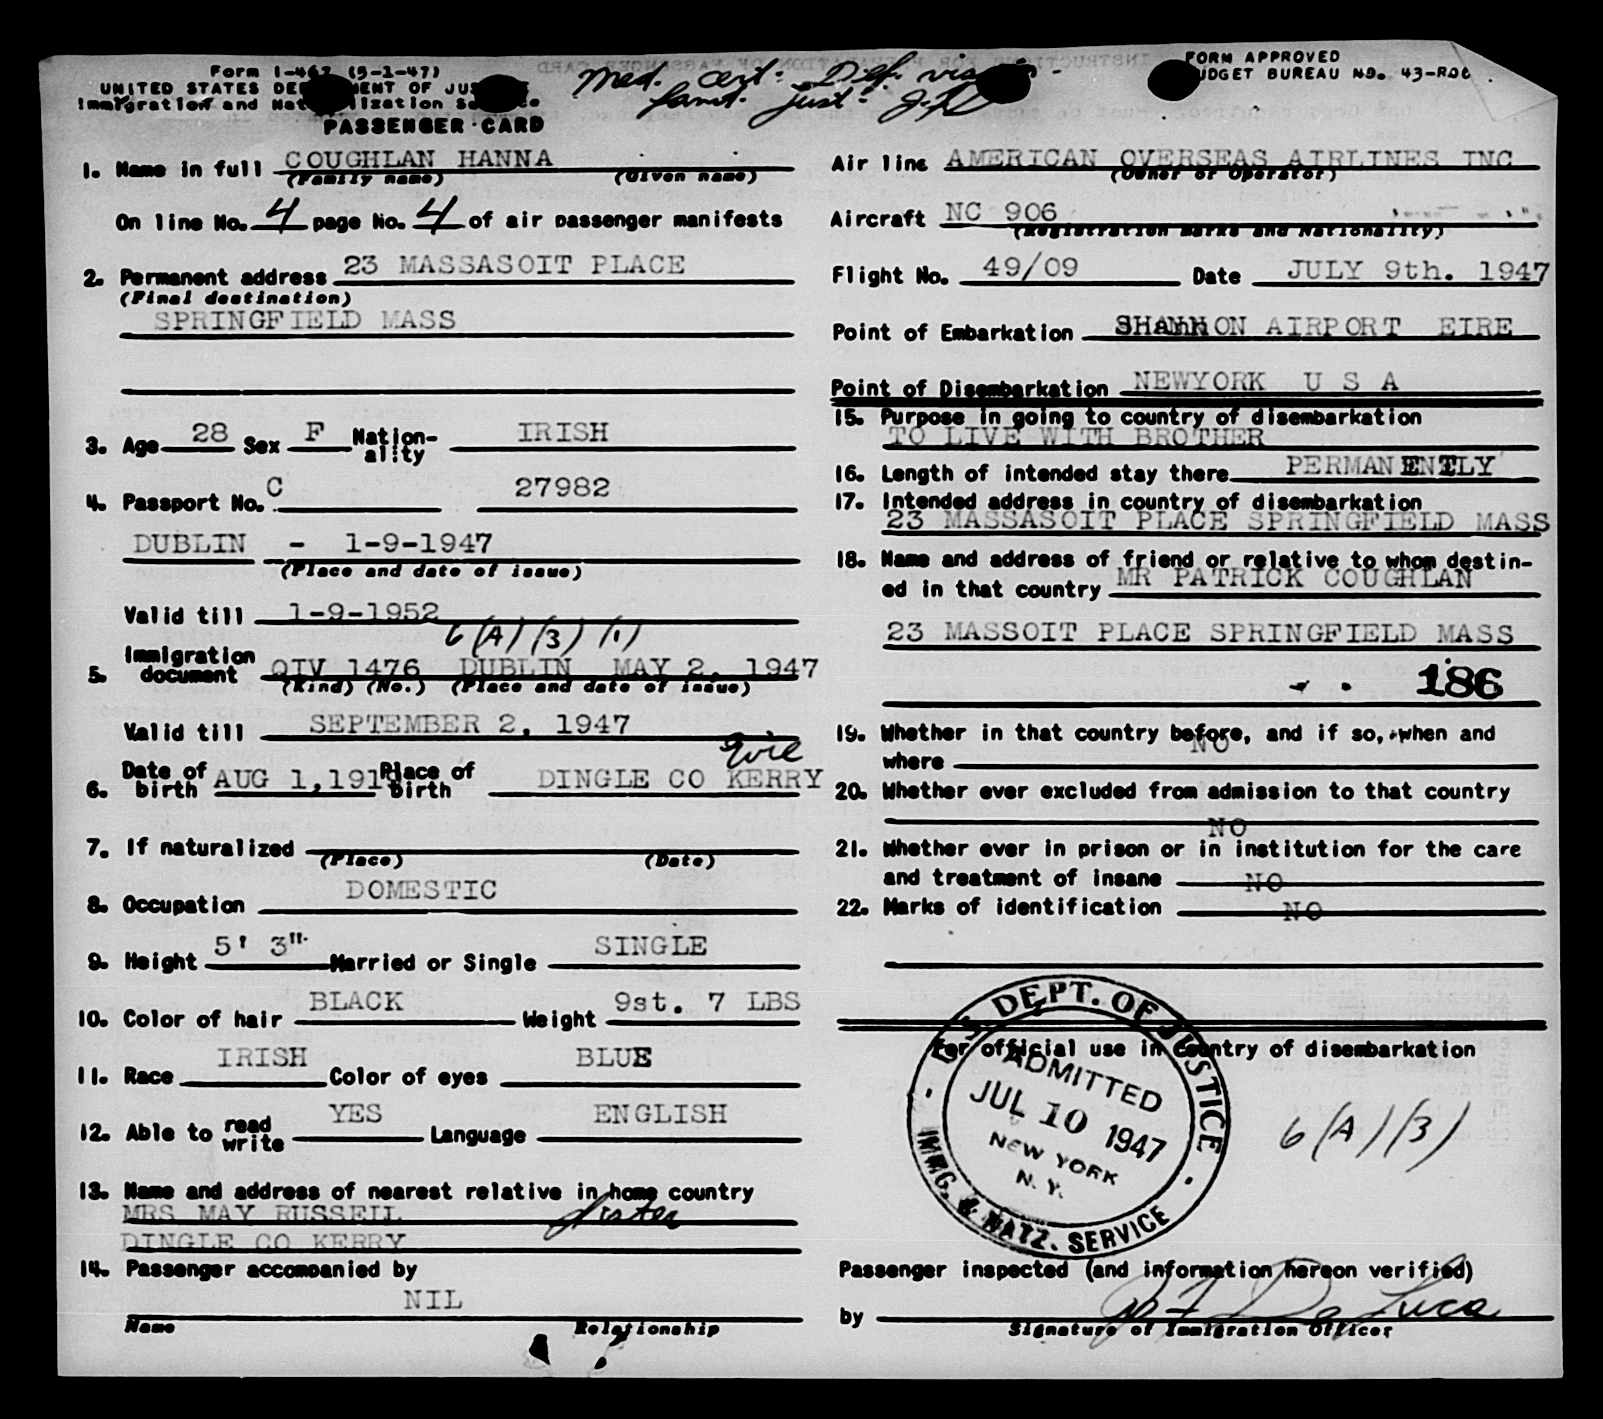 Form I-467 (5-1-47)
UNITED STATES DEPARTMENT OF JUSTICE
Immigration and Naturalization Service
PASSENGER CARD
Med. cert: Def. vision.
FORM APPROVED
BUDGET BUREAU NO. 43-R06
1. Name in full COUGHLAN HANNA
(Family name) (Given name)
On line No. 4 page No. 4 of air passenger manifests
2. Permanent address 23 MASSASOIT PLACE
(Final destination)
SPRINGFIELD MASS
3. Age 28 Sex F Nation-ality IRISH
4. Passport No. C 27982
DUBLIN - 1-9-1947
(Place and date of issue)
Valid till 1-9-1952
6(A)(3)(1)
5. Immigration document QIV 1476 DUBLIN MAY 2, 1947
(Kind) (No.) (Place and date of issue)
Valid till SEPTEMBER 2, 1947
Eire
6. Date of birth AUG 1,191 Place of birth DINGLE CO KERRY
7. If naturalized
(Place) (Date)
8. Occupation DOMESTIC
9. Height 5' 3" Married or Single SINGLE
10. Color of hair BLACK Weight 9st. 7 LBS
11. Race IRISH Color of eyes BLUE
12. Able to read write YES Language ENGLISH
13. Name and address of nearest relative in home country
MRS MAY RUSSELL Sister
DINGLE CO KERRY
14. Passenger accompanied by
NIL
Name Relationship
Air line AMERICAN OVERSEAS AIRLINES INC
(Owner or Operator)
Aircraft NC 906
(Registration marks and Nationality)
Flight No. 49/09 Date JULY 9th. 1947
Point of Embarkation SHANNON AIRPORT EIRE
Point of Disembarkation NEWYORK U S A
15. Purpose in going to country of disembarkation
TO LIVE WITH BROTHER
16. Length of intended stay there PERMANENTLY
17. Intended address in country of disembarkation
23 MASSASOIT PLACE SPRINGFIELD MASS
18. Name and address of friend or relative to whom destin-
ed in that country MR PATRICK COUGHLAN
23 MASSOIT PLACE SPRINGFIELD MASS
186
19. Whether in that country before, and if so, when and
where NO
20. Whether ever excluded from admission to that country
NO
21. Whether ever in prison or in institution for the care
and treatment of insane NO
22. Marks of identification NO
For official use in country of disembarkation
U.S. DEPT. OF JUSTICE
ADMITTED
JUL 10 1947
NEW YORK
N. Y.
IMMG. & NATZ. SERVICE
6(A)(3)
Passenger inspected (and information hereon verified)
by De Luca
Signature of Immigration Officer